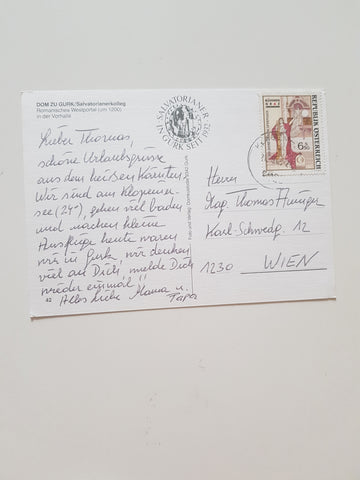 DOM ZU GURK/Salvatorianerkolleg
Romanisches Westportal (um 1200)
in der Vorhalle
SALVATORIANER
IN GURK SEIT 1932
REPUBLIK ÖSTERREICH
Lieber Thomas,
schöne Urlaubsgrüsse
aus dem heißen Kärnten.
Wir sind am Klopeiner-
see (24°), gehen viel baden
und machen kleine
Ausflüge heute waren
wir in Gurk, wir denken
viel an Dich, melde Dich
wieder einmal!!
Alles Liebe Mama u.
Papa
Herrn
Mag. Thomas
Karl-Schwedg. 12
1230 WIEN